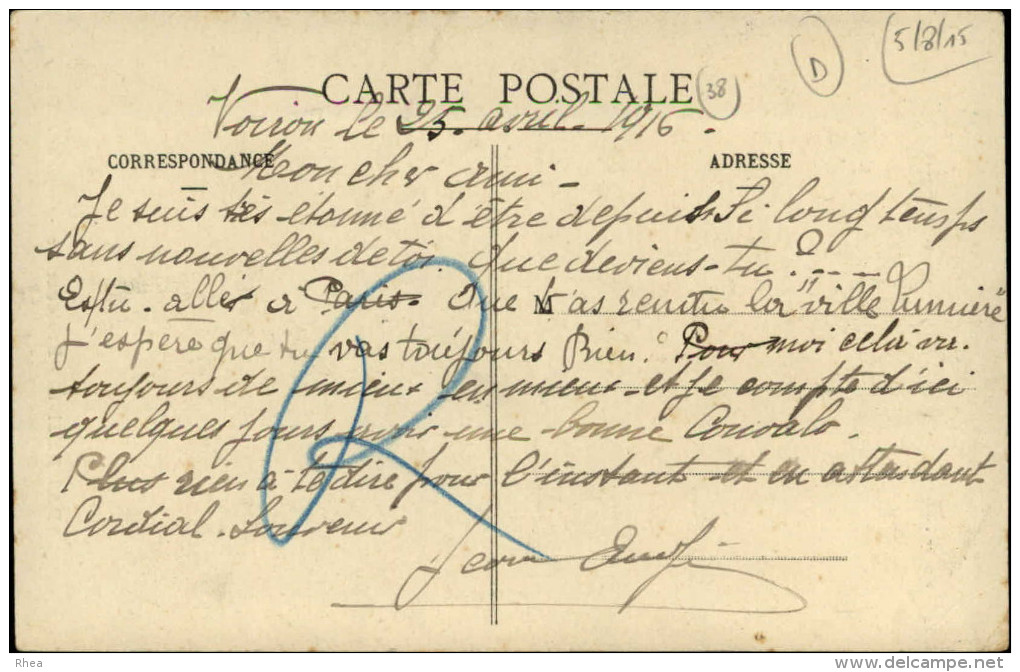 5/8/15
D
38
CARTE POSTALE
Voiron le 25 avril 1916.
CORRESPONDANCE
ADRESSE
Mon cher ami -
Je suis très étonné d'être depuis si longtemps
sans nouvelles de toi. Que deviens-tu ?
Es tu allé à Paris. Que t'as rendu la "ville lumière"
M
J'espère que tu vas toujours bien. Pour moi cela va
toujours de mieux en mieux et je compte d'ici
quelques jours avoir une bonne Convalo.
Plus rien à te dire pour l'instant et en attendant
Cordial Souvenir
Jean
Rhea
www.delcampe.net